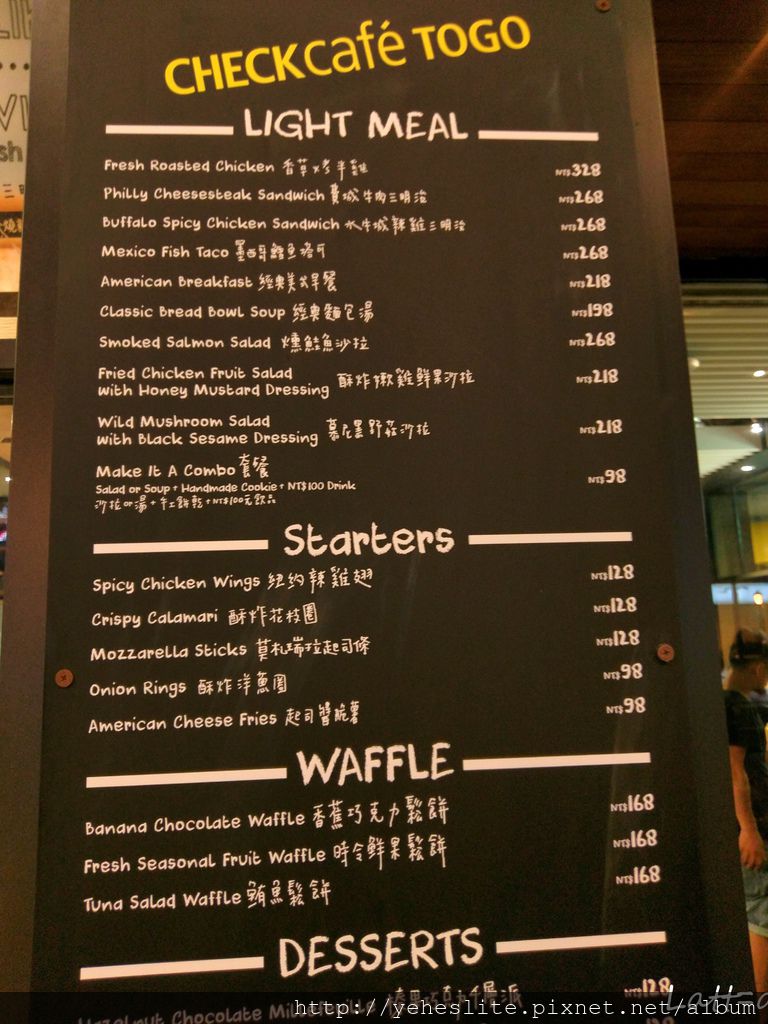 CHECKcafé TOGO
LIGHT MEAL
Fresh Roasted Chicken 香草烤半雞 NT$328
Philly Cheesesteak Sandwich 費城牛肉三明治 NT$268
Buffalo Spicy Chicken Sandwich 水牛城辣雞三明治 NT$268
Mexico Fish Taco 墨西哥鱈魚塔可 NT$268
American Breakfast 經典美式早餐 NT$218
Classic Bread Bowl Soup 經典麵包湯 NT$198
Smoked Salmon Salad 燻鮭魚沙拉 NT$268
Fried Chicken Fruit Salad
with Honey Mustard Dressing 酥炸嫩雞鮮果沙拉 NT$218
Wild Mushroom Salad
with Black Sesame Dressing 慕尼黑野菇沙拉 NT$218
Make It A Combo 套餐 NT$98
Salad or Soup + Handmade Cookie + NT$100 Drink
沙拉or湯+手工餅乾+NT$100元飲品
Starters
Spicy Chicken Wings 紐約辣雞翅 NT$128
Crispy Calamari 酥炸花枝圈 NT$128
Mozzarella Sticks 莫札瑞拉起司條 NT$128
Onion Rings 酥炸洋魚圈 NT$98
American Cheese Fries 起司醬脆薯 NT$98
WAFFLE
Banana Chocolate Waffle 香蕉巧克力鬆餅 NT$168
Fresh Seasonal Fruit Waffle 時令鮮果鬆餅 NT$168
Tuna Salad Waffle 鮪魚鬆餅 NT$168
DESSERTS
Hazelnut Chocolate Millefeuille 榛果巧克力千層派 NT$128
http://yeheslite.pixnet.net/album